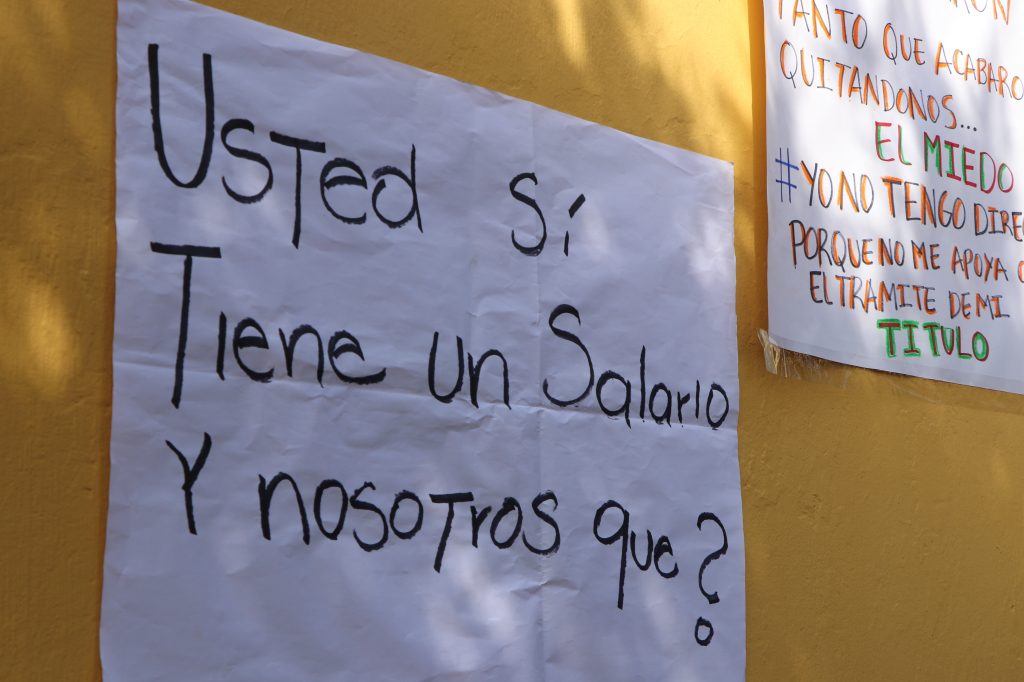 Usted sí
Tiene un Salario
Y nosotros que?
TANTO QUE
QUITANDONOS...
EL MIEDO
#YO NO TENGO
PORQUE NO ME APOYA
EL TRAMITE DE MI
TITULO